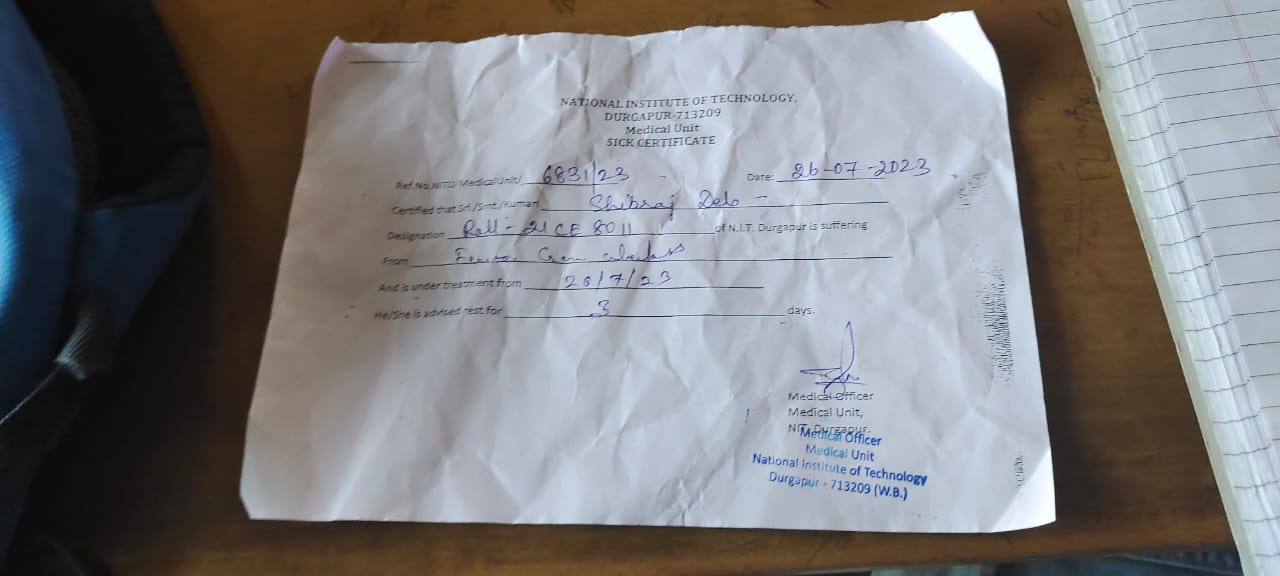 NATIONAL INSTITUTE OF TECHNOLOGY,
DURGAPUR-713209
Medical Unit
SICK CERTIFICATE
Ref.No.NITD/MedicalUnit/ 6831/23 Date: 26-07-2023
Certified that Sri./Smt./Kumari Shibraj Deb
Designation Roll - 21CE8011 of N.I.T. Durgapur is suffering
From
And is under treatment from 26/7/23
He/She is advised rest for 3 days.
Medical Officer
Medical Unit,
NIT, Durgapur.
Medical Officer
Medical Unit
National Institute of Technology
Durgapur - 713209 (W.B.)